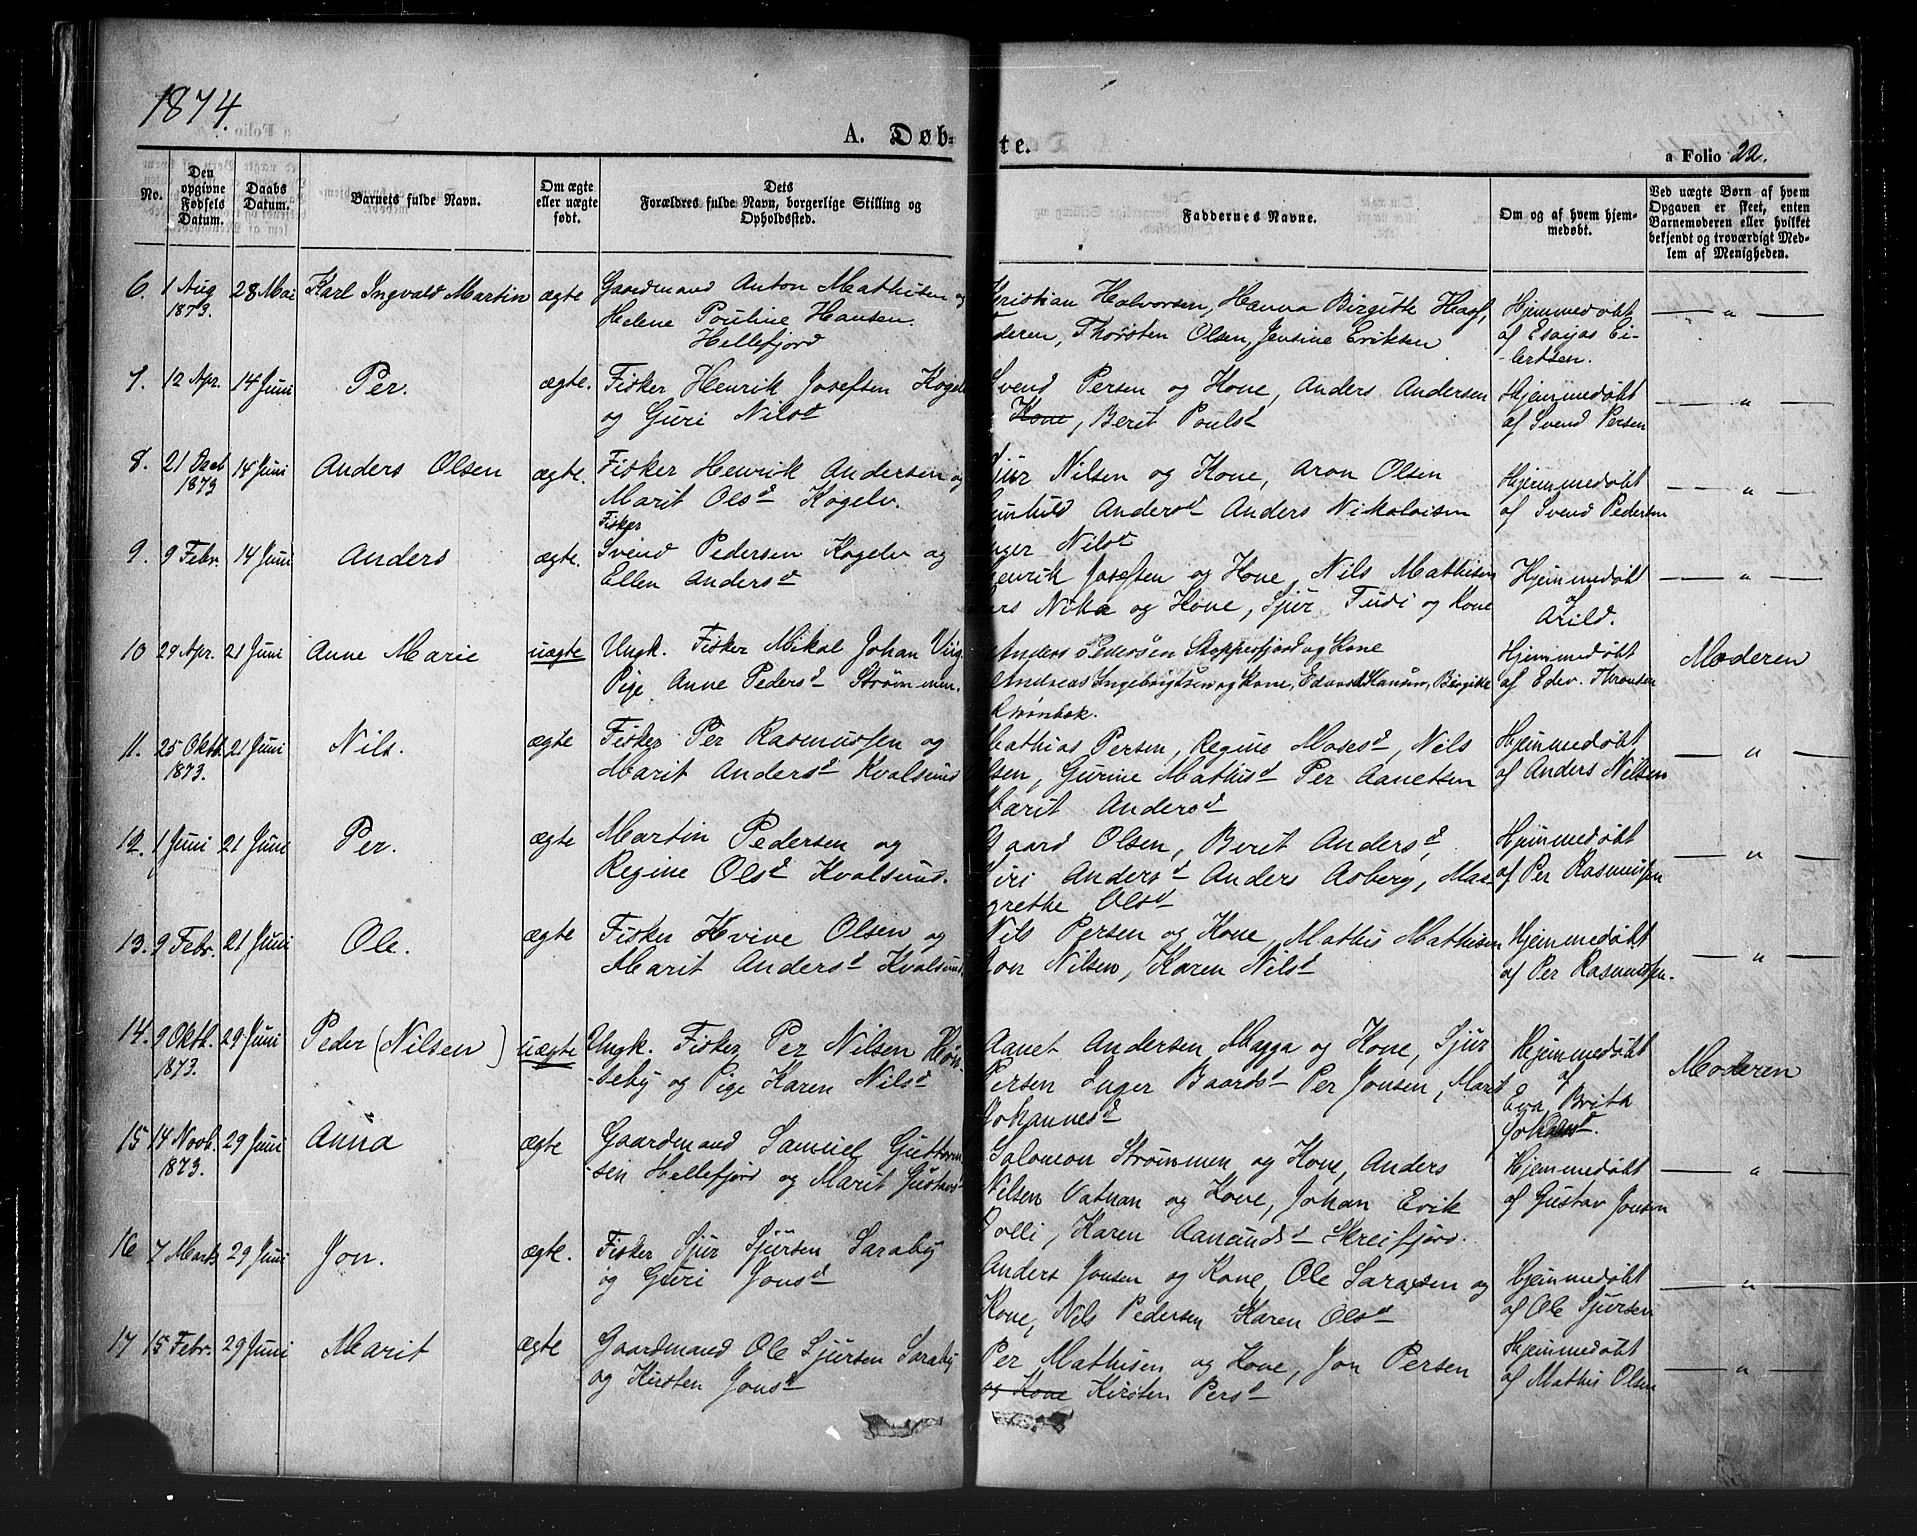 1874.
A. Døb-
te.
a Folio 22.
No.
Den opgivne Fødsels Datum.
Daabs Datum.
Barnets fulde Navn.
Om ægte eller uægte født.
Dets Forældres fulde Navn, borgerlige Stilling og Opholdssted.
Faddernes Navne.
Om og af hvem hjem-
medøbt.
Ved uægte Børn af hvem Opgaven er skeet, enten Barnemoderen eller hvilket bekjendt og troværdigt Med-
lem af Menigheden.
6. 1 Aug 1873. 28 Mai Karl Ingvald Martin ægte Gaardmand Anton Mathisen og
Helene Pouline Hansen.
Hellefjord
Kristian Halvorsen, Hanna Birgitte Haaf,
Thorsten Olsen, Jensine Eriksen
Hjemmedøbt
af Esaias Ei-
-lertsen.
— " —
7. 12 Apr. 14 Juni Per. ægte. Fisker Henrik Josefsen Kogelv
og Guri Nilsd
Svend Persen og Kone, Anders Andersen
Kone, Berit Poulsd
Hjemmedøbt
af Svend Persen
— " —
8. 21 Decb 1873 14 Juni Anders Olsen ægte. Fisker Henrik Andersen og
Marit Olsd Kogelv.
Sjur Nilsen og Kone, Aron Olsen
Gunhild Andersd Anders Nikolaisen
Inger Nilsd
Hjemmedøbt
af Svend Pedersen
— " —
9. 9 Febr. 14 Juni Anders ægte. Fisker
Svend Pedersen Kogelv og
Ellen Andersd
Henrik Josefsen og Kone, Nils Mathisen
Nika og Kone, Sjur Tudi og Kone
Hjemmedøbt
af
Arild.
— " —
10 29 Apr. 21 Juni Anne Marie uægte Ungk. Fisker Mikal Johan
Pige Anne Pedersd Strømmen.
Anders Pedersen Skoppefjord og Kone
Andreas Ingebrigtsen og Kone, Edvard Hansen, Birgitte
Hjemmedøbt
af Edev. Thronsen
Moderen
11. 25 Oktb. 1873. 21 Juni Nils. ægte Fisker Per Rasmussen og
Marit Andersd Kvalsund
Mathias Persen, Regine Mosesd, Nils
Olsen, Gurine Mathisd Per Aanetsen
Marit Andersd
Hjemmedøbt
af Anders Nilsen
— " —
12. 1 Juni 21 Juni Per. ægte Martin Pedersen og
Regine Olsd Kvalsund.
Baard Olsen, Berit Andersd,
Siri Andersd Anders Asberg, Mar-
grethe Olsd
Hjemmedøbt
af Per Rasmussen
— " —
13. 9 Febr. 21 Juni Ole. ægte Fisker Kvive Olsen og
Marit Andersd Kvalsund
Nils Persen og Kone, Mathis Mathisen
Jon Nilsen, Karen Nilsd
Hjemmedøbt
af Per Rasmussen.
— " —
14. 9 Oktb. 1873. 29 Juni Peder (Nilsen) uægte Ungk. Fisker Per Nilsen Høn-
-seby og Pige Karen Nilsd
Aanet Andersen Magga og Kone, Sjur
Persen Inger Baardsd Per Jonsen, Marit
Johannesd
Hjemmedøbt
af
Eva Brita
Moderen
15 14 Novb. 1873. 29 Juni Anna ægte Gaardmand Samuel Guttorm-
-sen Hellefjord og Marit Gustavsd
Salomon Strømmen og Kone, Anders
Nilsen Vatnan og Kone, Johan Erik
Polli, Karen Aamundsd Skreifjord.
Hjemmedøbt
af Gustav Jonsen
— " —
16 7 Marts 29 Juni Jon. ægte. Fisker Sjur Sjursen Saraby
og Guri Jonsd
Anders Jonsen og Kone, Ole Sarasen og
Kone, Nils Pedersen Karen Olsd
Hjemmedøbt
af Ole Sjursen
— " —
17 15 Febr. 29 Juni Marit ægte Gaardmand Ole Sjursen Saraby
og Kirsten Jonsd
Per Mathisen og Kone, Jon Persen
og Kone Kirsten Persd
Hjemmedøbt
af Mathis Olsen
— " —